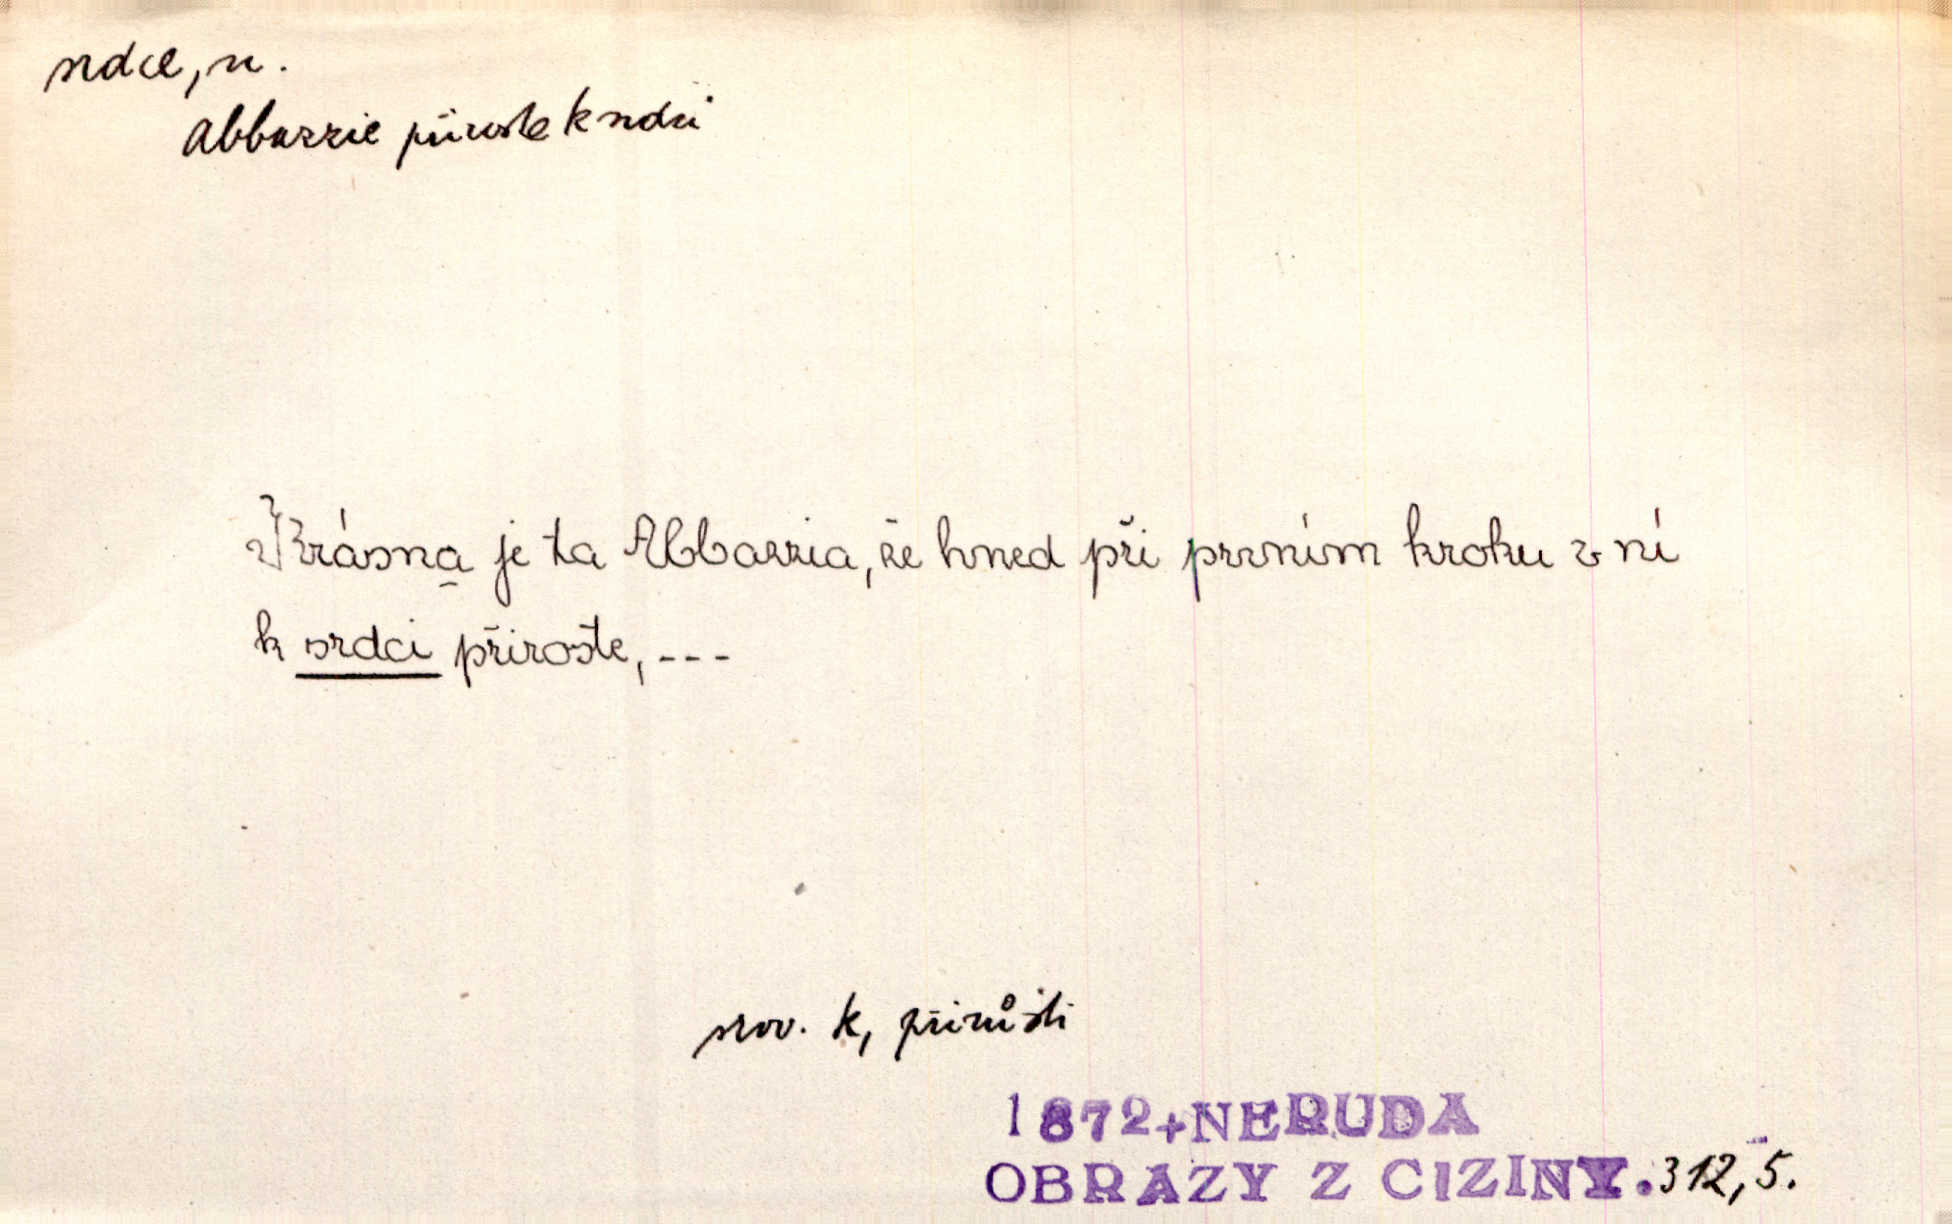 srdce, n.
Abbazzie přiroste k srdci
Krásna je ta Abbazzia, že hned při prvním kroku v ní
k srdci přiroste, ---
srov. k, přirůsti
1872+NERUDA
OBRAZY Z CIZINY. 312, 5.